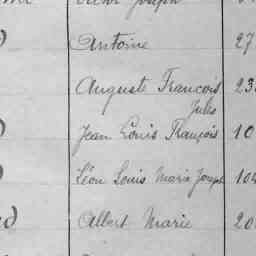 Joseph
Antoine 27
Auguste François 23
Jules
Jean Louis François 10
Léon Louis Marie Joseph 10
Albert Marie 20